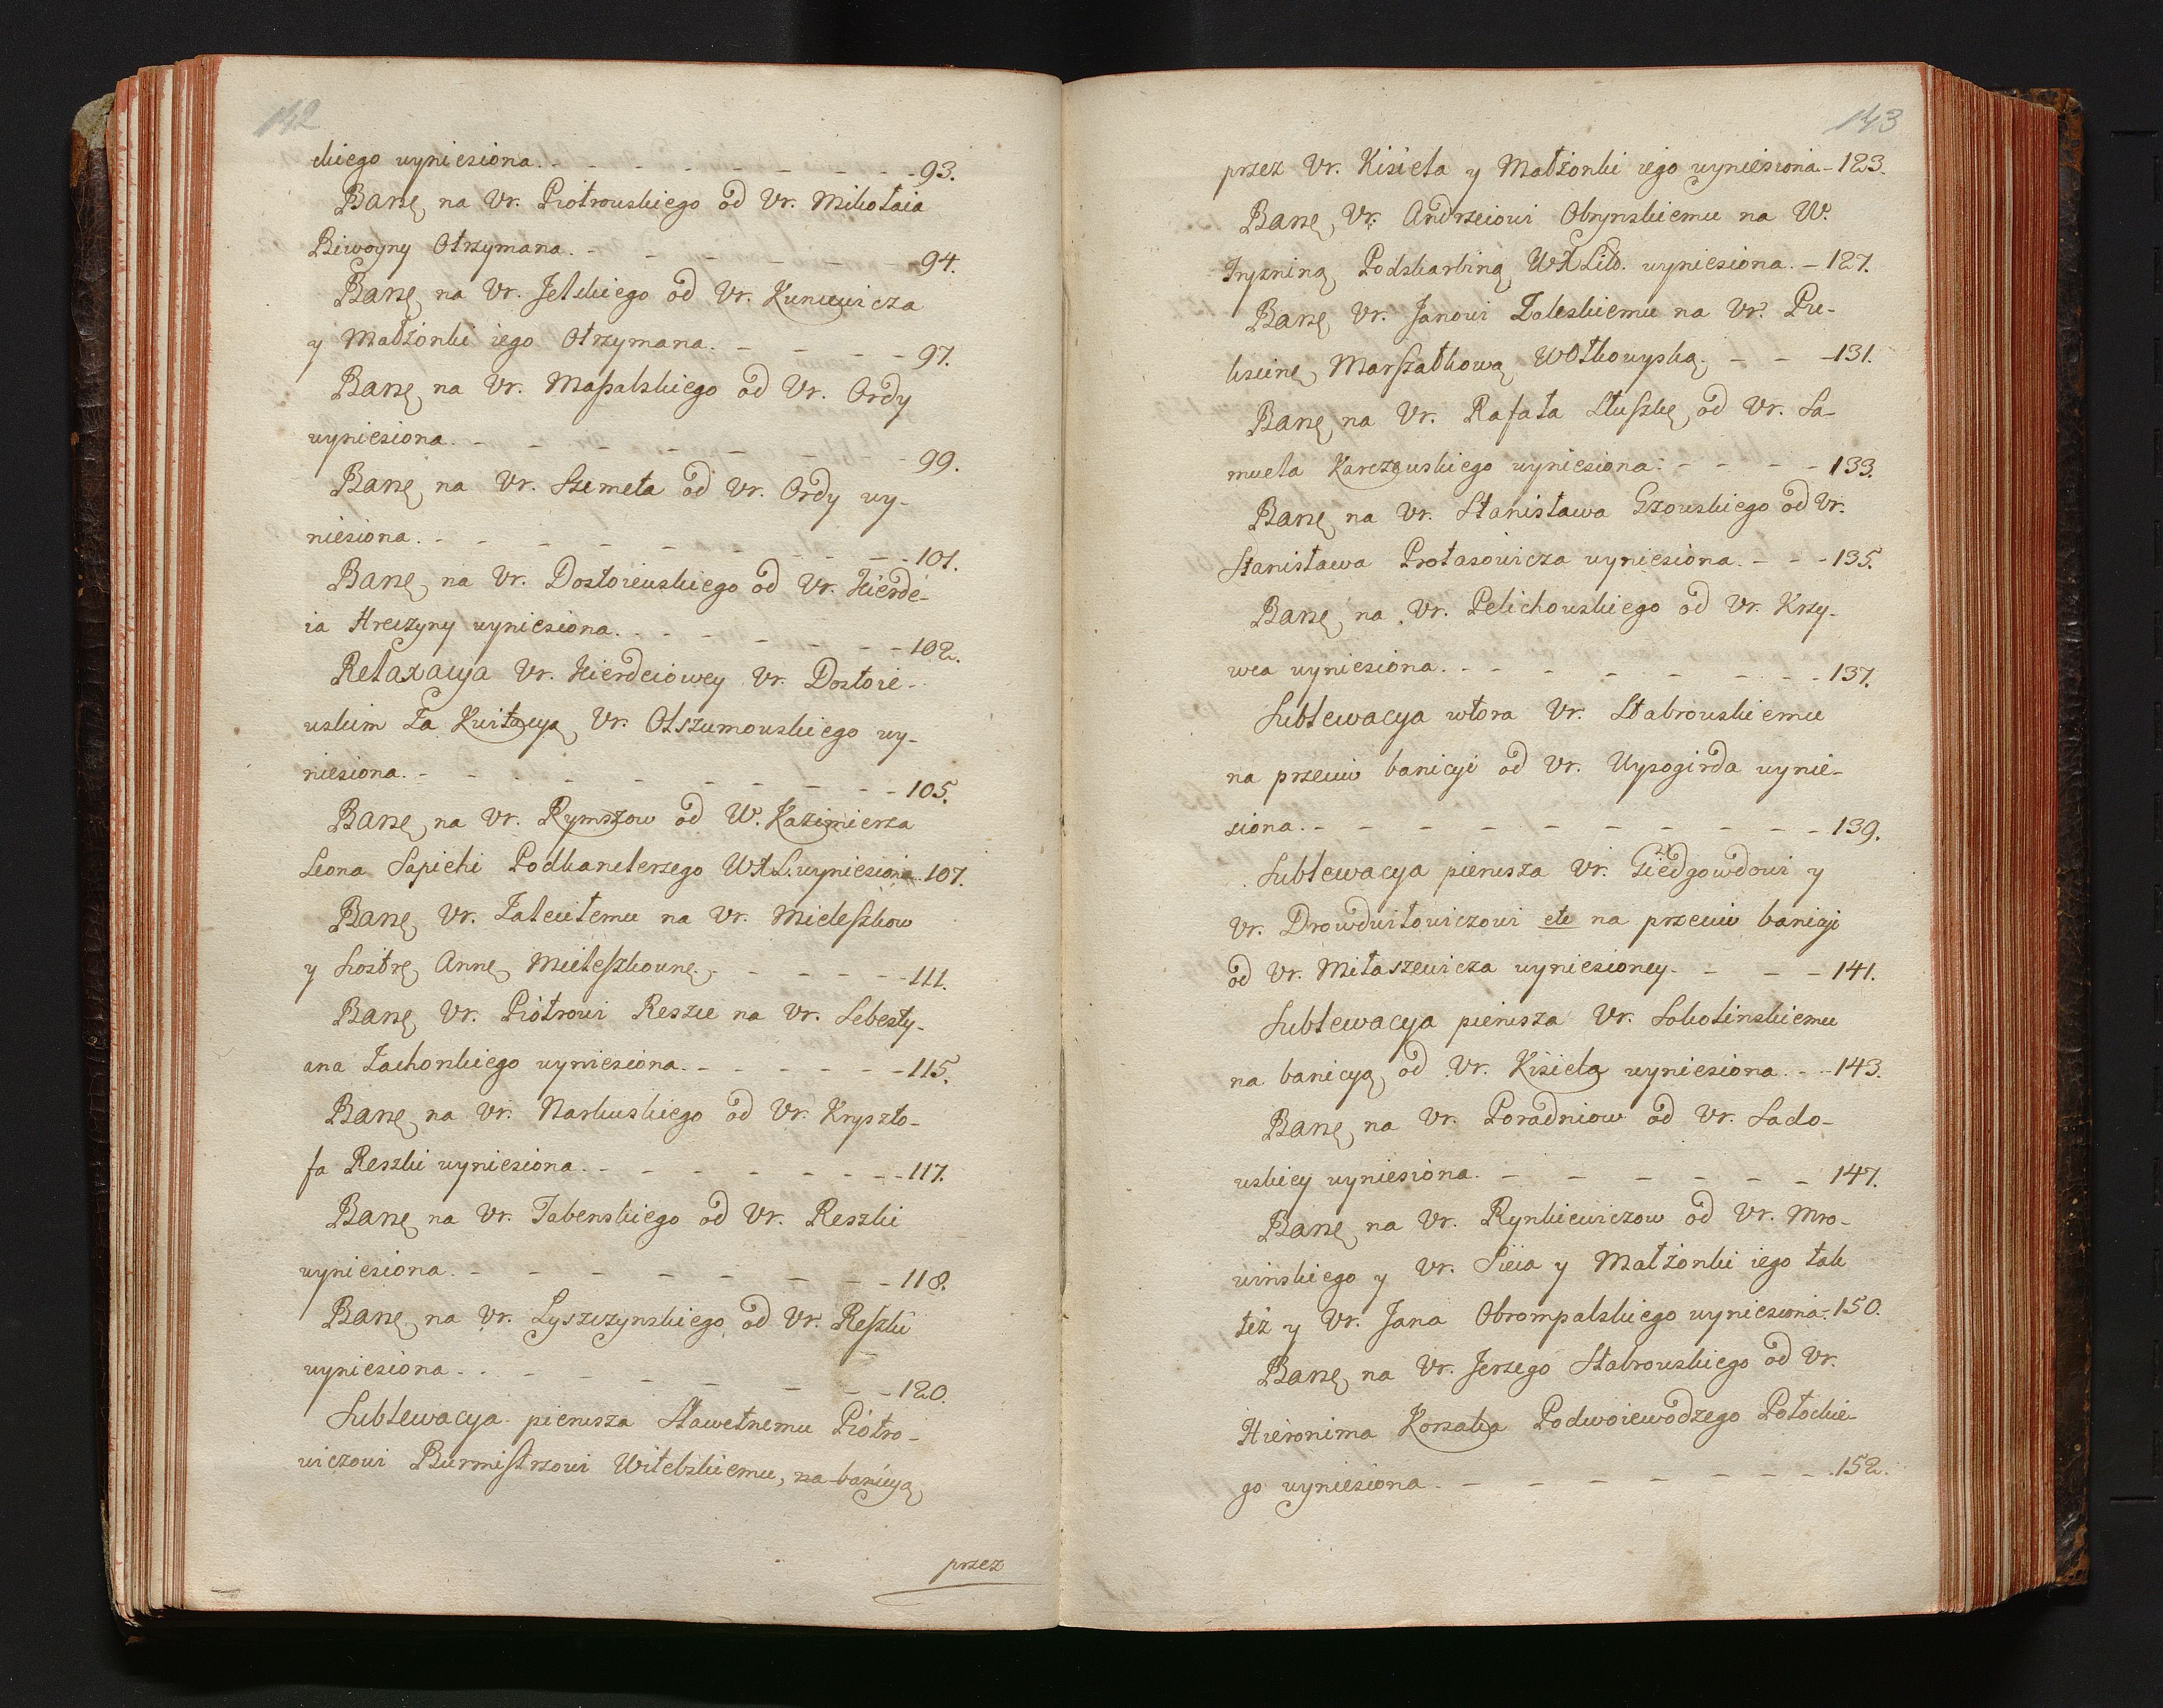 142
ckiego wyniesiona. - - - - - - - 93.
Banę na Ur. Piotrowskiego od Ur. Mikołaia
Biwoyny Otrzymana. - - - - - - 94.
Banę na Ur. Jelskiego od Ur. Kuncewicza
y Małżonki iego Otrzymana. - - - - 97.
Banę na Ur. Massalskiego od Ur. Ordy
wyniesiona. - - - - - - - 99.
Banę na Ur. Szemeta od Ur. Ordy wy-
niesiona. - - - - - - - - 101.
Banę na Ur. Dostoiewskiego od Ur. Kierde-
ia Hreczyny wyniesiona. - - - - - 102.
Relaxacya Ur. Kierdeiowey Ur. Dostoie-
wskim Za Kwitacyą Ur. Olszumowskiego wy-
niesiona. - - - - - - - - 105.
Banę na Ur. Rymszow od W. Kazimierza
Leona Sapiehi Podkanclerzego WXL. wyniesiona. 107.
Banę Ur. Zaleutemu na Ur. Mieleszkow
y Siostrę Annę Mieleszkownę. - - - - - 111.
Banę Ur. Piotrowi Reszce na Ur. Sebesty-
ana Zachonskiego wyniesiona. - - - - - 115.
Banę na Ur. Narkuskiego od Ur. Kryszto-
fa Reszki wyniesiona. - - - - - - 117.
Banę na Ur. Tabenskiego od Ur. Reszki
wyniesiona. - - - - - - - 118.
Banę na Ur. Lyszczynskiego od Ur. Reszki
wyniesiona. - - - - - - - 120.
Sublewacya pierwsza Sławetnemu Piotro-
wiczowi Burmistrzowi Witebskiemu, na banicyą
przez
143
przez Ur. Kisiela y Małżonki iego wyniesiona - 123.
Banę Ur. Andrzeiowi Obrynskiemu na W.
Tryzniną Podskarbiną WX Lith. wyniesiona. - 127.
Banę Ur. Janowi Zaleskiemu na Ur. Pu-
kszinę Marszałkową Wołkowyską. - - - 131.
Banę na Ur. Rafała Słuszkę od Ur. Sa-
muela Karczewskiego wyniesiona. - - - - 133.
Banę na Ur. Stanisława Gzowskiego od Ur.
Stanisława Protasowicza wyniesiona. - - - 135.
Banę na Ur. Pelichowskiego od Ur. Krzy-
wca wyniesiona. - - - - - - - 137.
Sublewacya wtora Ur. Stabrowskiemu
na przeciw banicyi od Ur. Wysogirda wynie-
siona. - - - - - - - - - 139.
Sublewacya pierwsza Ur. Giedgowdowi y
Ur. Drowdwitowiczowi etc na przeciw banicyi
od Ur. Milaszewicza wyniesioney. - - - 141.
Sublewacya pierwsza Ur. Sokolinskiemu
na banicyą od Ur. Kisiela wyniesiona. - - 143.
Banę na Ur. Poradniow od Ur. Sado-
wskiey wyniesiona. - - - - - - 147.
Banę na Ur. Rynkiewiczow od Ur. Mro-
winskiego y Ur. Sieia y Małżonki iego tak
też y Ur. Jana Obrompalskiego wyniesiona. 150.
Banę na Ur. Jerzego Stabrowskiego od Ur.
Hieronima Korsaka Podwoiewodzego Połockie-
go wyniesiona. - - - - - - - 152.